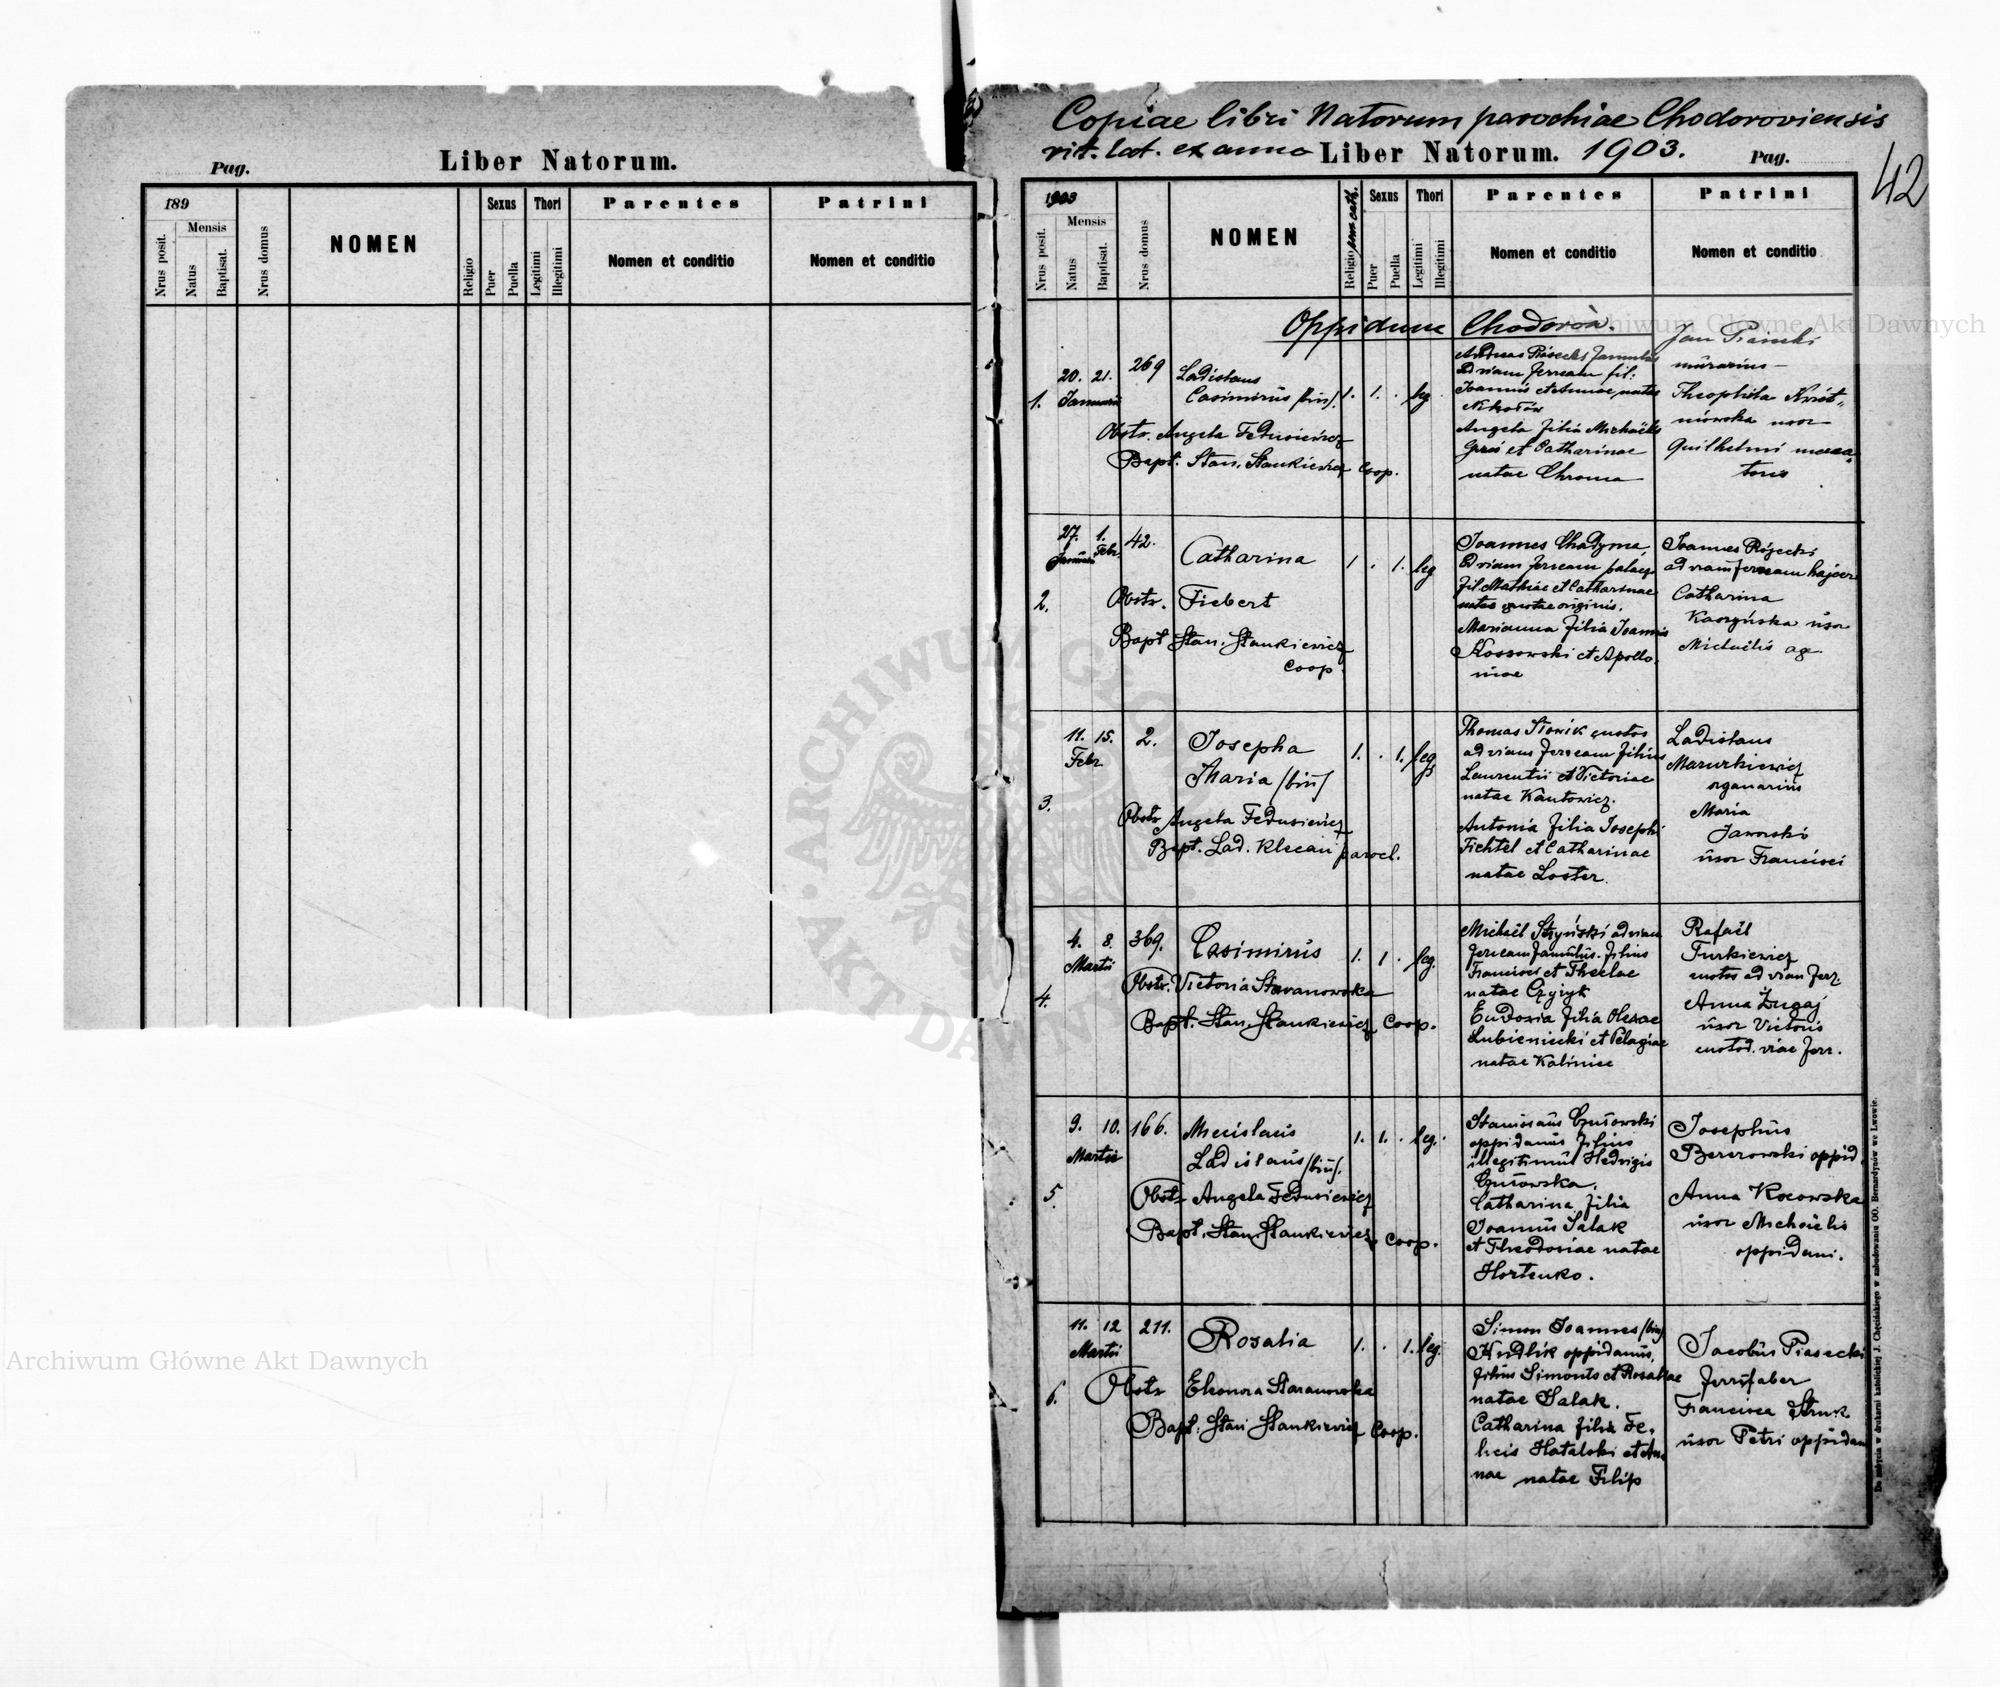 Pag.
Liber Natorum.
189
Mensis
Nrus posit.
Natus
Baptisat.
Nrus domus
NOMEN
Religio
Sexus
Puer
Puella
Thori
Legitimi
Illegitimi
Parentes
Nomen et conditio
Patrini
Nomen et conditio
Copiae libri Natorum parochiae Chodoroviensis
rit. lat. ex anno Liber Natorum. 1903.
Pag.
42
1903
Mensis
Nrus posit.
Natus
Baptisat.
Nrus domus
NOMEN
Religio
Sexus
Puer
Puella
Thori
Legitimi
Illegitimi
Parentes
Nomen et conditio
Patrini
Nomen et conditio
Oppidum Chodorów.
1.
20. 21.
Januarii
269
Ladislaus
Casimirus /bin/.
1. 1. . leg.
Obstr. Angela Fedusiewicz
Bapt. Stan. Stankiewicz Coop.
Andreas famulus
ad viam ferream fil.
Joannis et Annae natae
Angela filia Michaëlis
et Catharinae
natae Chroma
Jan
murarius
Theophila
uxor
Guilhelmi merca-
toris
2.
27. 1.
Januarii Febr.
42.
Catharina
1 . 1. leg
Obstr. Fiebert
Bapt Stan. Stankiewicz
Coop.
Joannes Chadyma
ad viam ferream
fil. Mathiae et Catharinae
natae ignotae originis.
Marianna filia Joannis
Kossowski et Apollo-
niae
Joannes
ad viam ferream
Catharina
uxor
Michaëlis ag.
3.
11. 15.
Febr
2.
Josepha
Maria /bin/
1. . 1. leg
Obstr Angela Fedusiewicz
Bapt. Lad. Klecan paroch.
Thomas Słowik custos
ad viam ferream filius
Laurentii et Victoriae
natae Kantowicz.
Antonia filia Josephi
Fichtel et Catharinae
natae Loster.
Ladislaus
Mazurkiewicz
organarius
Maria
Jaworski
uxor Francisci
4.
4. 8.
Martii
369.
Casimirus
1. 1 . leg.
Obstr. Victoria Staranowska
Bapt. Stan. Stankiewicz Coop.
Michaël ad viam
ferream famulus filius
Francisci et Theclae
natae
Eudoxia filia
Lubieniecki et Pelagiae
natae
Rafaël
Turkiewicz
custos ad viam ferr
Anna Żugaj
uxor Victoris
custod. viae ferr.
5.
9. 10.
Martii
166.
Mecislaus
Ladislaus /bin/.
1. 1. . leg.
Obstr Angela Fedusiewicz
Bapt. Stan. Stankiewicz Coop.
Stanislaus
oppidanus filius
illegitimus Hedvigis
Catharina filia
Joannis Salak
et Theodosiae natae
Hortenko.
Josephus
Berezowski oppid.
Anna Kocowska
uxor Michaëlis
oppidani.
6.
11. 12
Martii
211.
Rosalia
1. . 1. leg.
Obstr Eleonora Staranowska
Bapt. Stan Stankiewicz Coop.
Simon Joannes /bin/
Kudlik oppidanus,
filius Simonis et Rosaliae
natae Salak.
Catharina filia Fe-
licis Hatalski et An-
nae natae Filip
Jacobus Piasecki
ferrifaber
Francisca Struk
uxor Petri oppidani
Do nabycia w drukarni katolickiej J. Chęcińskiego w zabudowaniu OO. Bernardynów we Lwowie.
Archiwum Główne Akt Dawnych
Archiwum Główne Akt Dawnych
ARCHIWUM GŁÓWNE AKT DAWNYCH